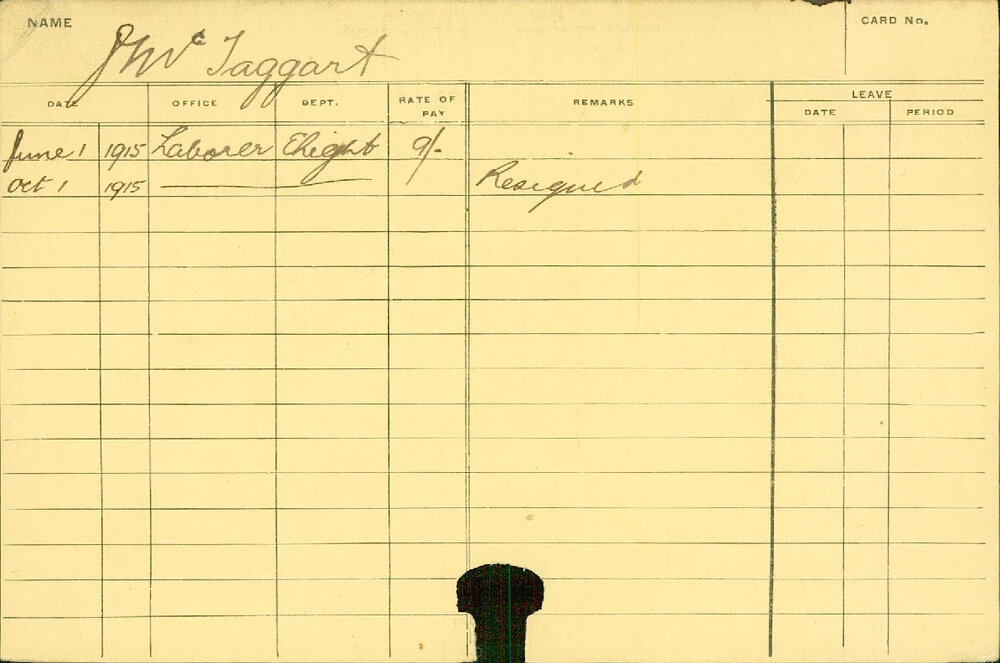 NAME
J McTaggart
CARD No.
DATE OFFICE DEPT. RATE OF PAY REMARKS LEAVE
DATE PERIOD
June 1 1915 Laborer 9/-
Oct 1 1915 Resigned